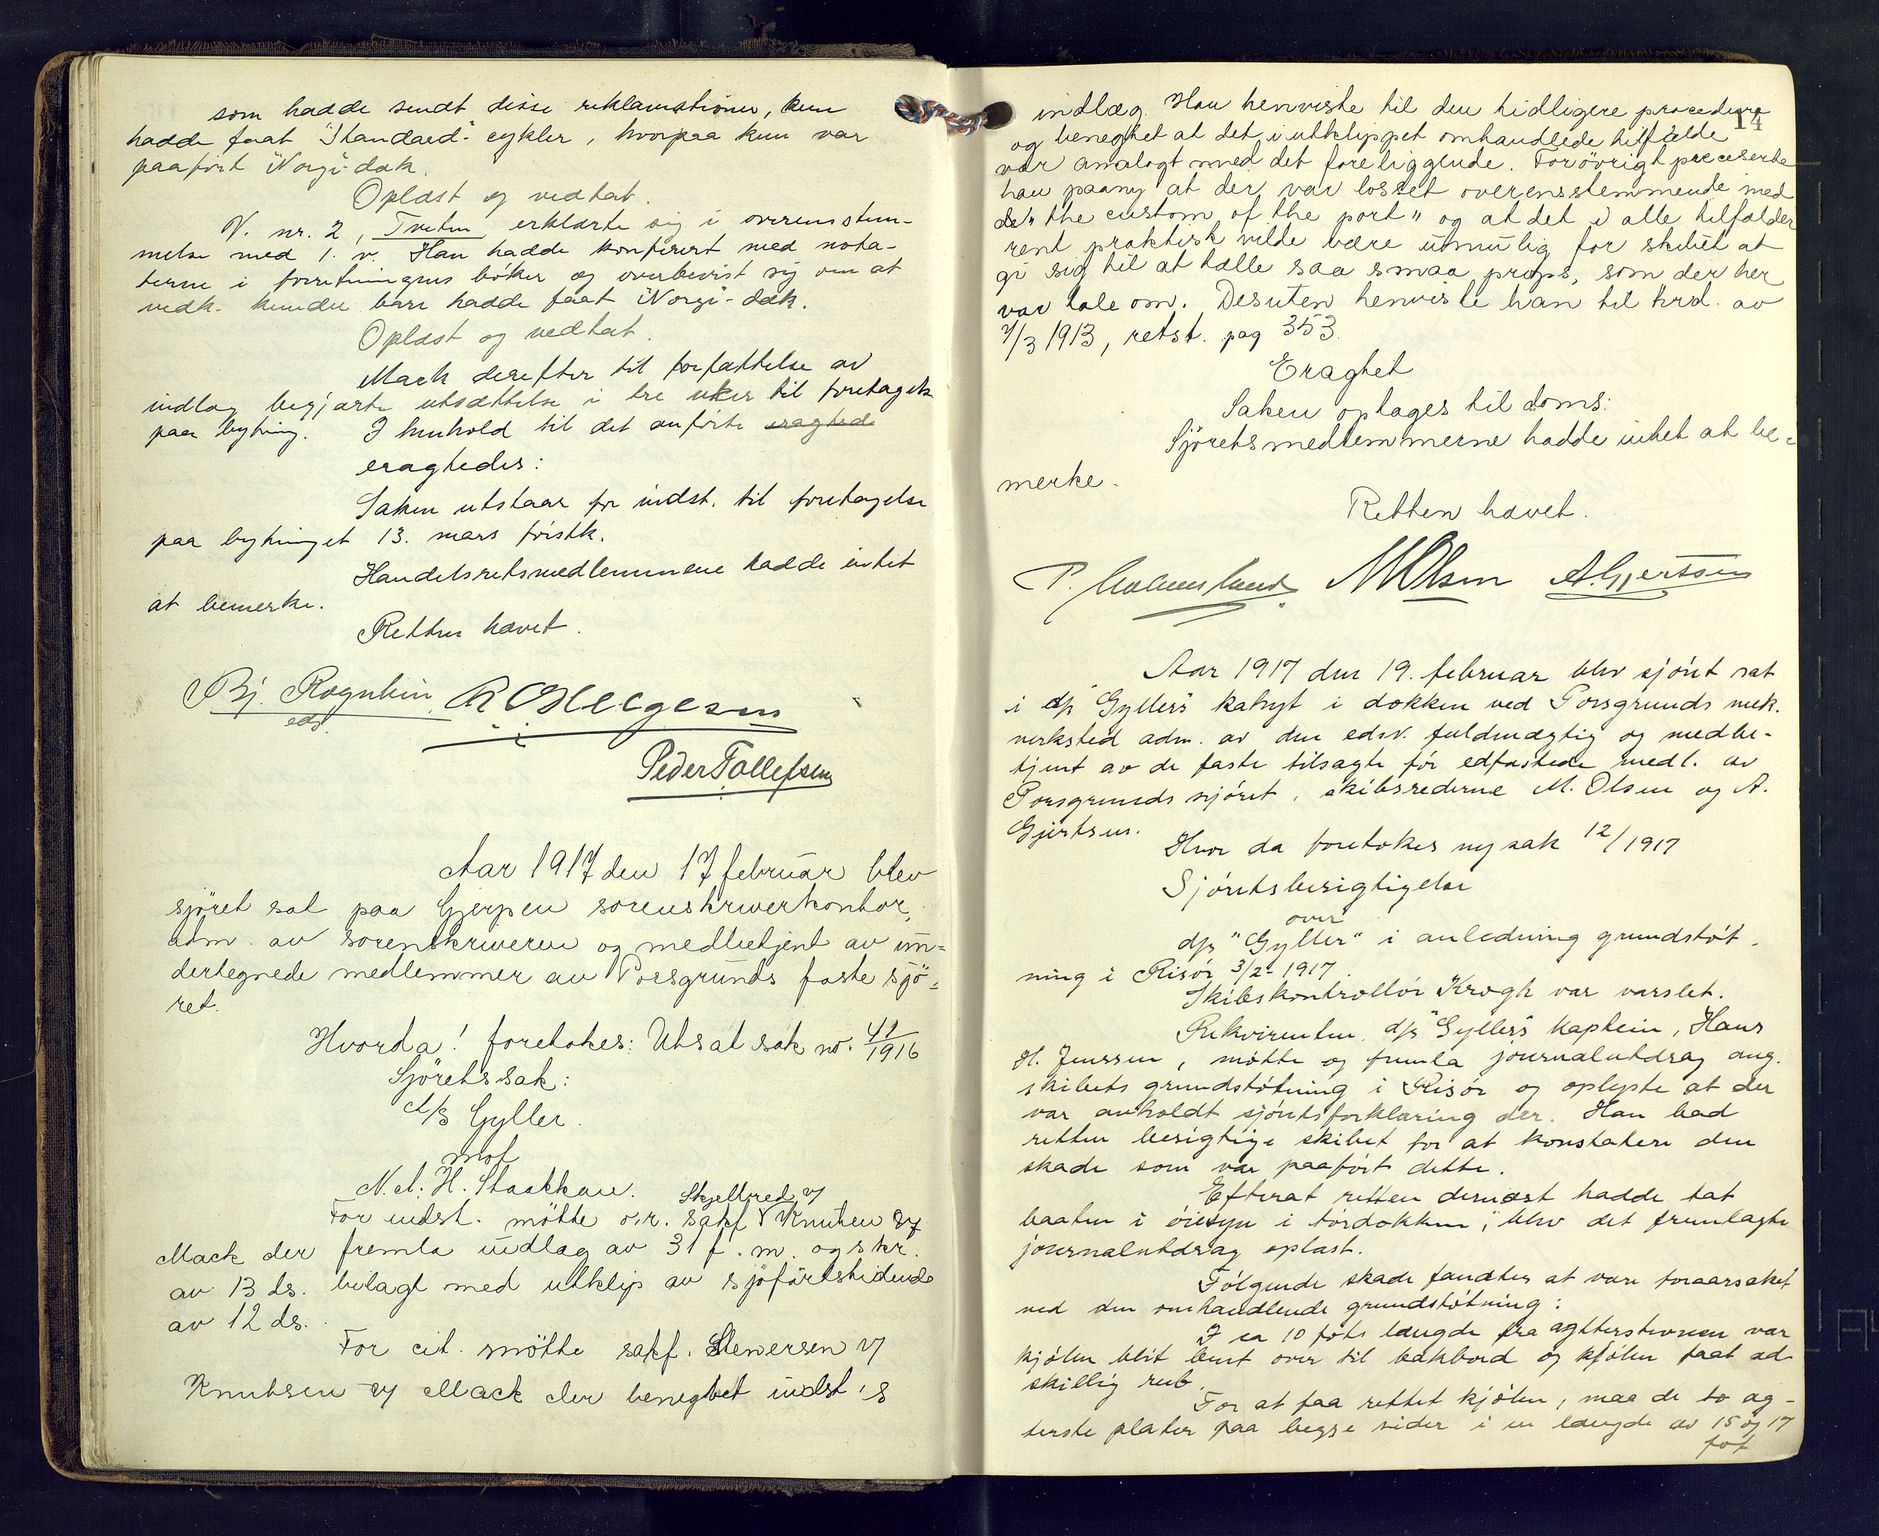 som hadde sendt disse reklamationer, kun
hadde faat "Standard"-cykler, hvorpaa kun var
paaført "Norgi"-dæk.
Oplæst og vedtat.
V. nr. 2, Tveten erklærte sig i overensstem-
melse med 1. v. Han hadde konferert med nota-
terne i forretningens bøker og overbevist sig om at
vedk. kunder bare hadde faat "Norgi"-dæk.
Oplæst og vedtat.
Mack derefter til forfattelse av
indlæg begjærte utsættelse i tre uker til foretagelse
paa bytning. I henhold til det anførte eragtedes
eragtedes:
Saken utstaar for indst. til foretagelse
paa bytinget 13. mars førstk.
Handelsretsmedlemmene hadde intet
at bemerke.
Retten hævet.
Bj. Rognlien
eds.
Helgesen
Peder Tollefsen
Aar 1917 den 17 februar blev
sjøret sat paa Gjerpen sorenskriverkontor,
adm. av sorenskriveren og medbetjent av un-
dertegnede medlemmer av Porsgrunds faste sjø-
ret.
Hvorda! foretokes: Utsat sak no. 41/1916
Sjøretssak:
d/s Gyller.
mot
N. A. H. Staakkan.
For indst. møtte o.r. sakf. Skjelbred v/ Knutsen v/
Mack der fremla indlæg av 31 f. m. og skr.
av 13 ds. bilagt med utklip av sjøfartstidende
av 12 ds.
For cit. møtte sakf. Stenersen v/
Knutsen v/ Mack der benegtet indst.'s
14
indlæg. Han henviste til den tidligere procedure
og benegtet at det i utklippet omhandlede tilfælde
var analogt med det foreliggende. Forøvrigt præciserte
han paany at der var losset overensstemmende med
de "the custom of the port" og at det i alle tilfælder
rent praktisk vilde være umulig for skibet at
gi sig til at tælle saa smaa props, som der her
var tale om. Desuten henviste han til hrd. av
7/3 1913, retst. pag 353.
Eragtet
Saken optages til doms:
Sjøretsmedlemmerne hadde intet at be-
merke.
Retten hævet.
M Olsen A. Gjertsen
Aar 1917 den 19. februar blev sjøret sat
i d/s "Gyller"s kahyt i dokken ved Porsgrunds mek.
verksted adm. av den edsv. fuldmægtig og medbe-
tjent av de faste tilsagte før edfæstede medl. av
Porsgrunds sjøret, skibsrederne M. Olsen og A.
Gjertsen.
Hvor da foretokes ny sak 12/1917
Sjøretsbesigtigelse
over
d/s "Gyller" i anledning grundstøt-
ning i Risør 3/2-1917.
Skibskontrollør Krogh var varslet.
Rekvirenten, d/s "Gyller"s kaptein, Hans
H. Jenssen, møtte og fremla journalutdrag ang.
skibets grundstøtning i Risør og oplyste at der
var anholdt sjøretsforklaring der. Han bad
retten besigtige skibet for at konstatere den
skade som var paaført dette.
Efterat retten dernæst hadde tat
baaten i øiesyn i tørdokken, blev det fremlagte
journalutdrag oplæst.
Følgende skade fandtes at være foraarsaket
ved den omhandlende grundstøtning:
I ca 10 fots længde fra agterstevnen var
kjølen blit bent over til bakbord og kjølen faat ad-
skillig rub.
For at faa rettet kjølen, maa de to ag-
terste plater paa begge sider i en længde av 15 og 17
fot